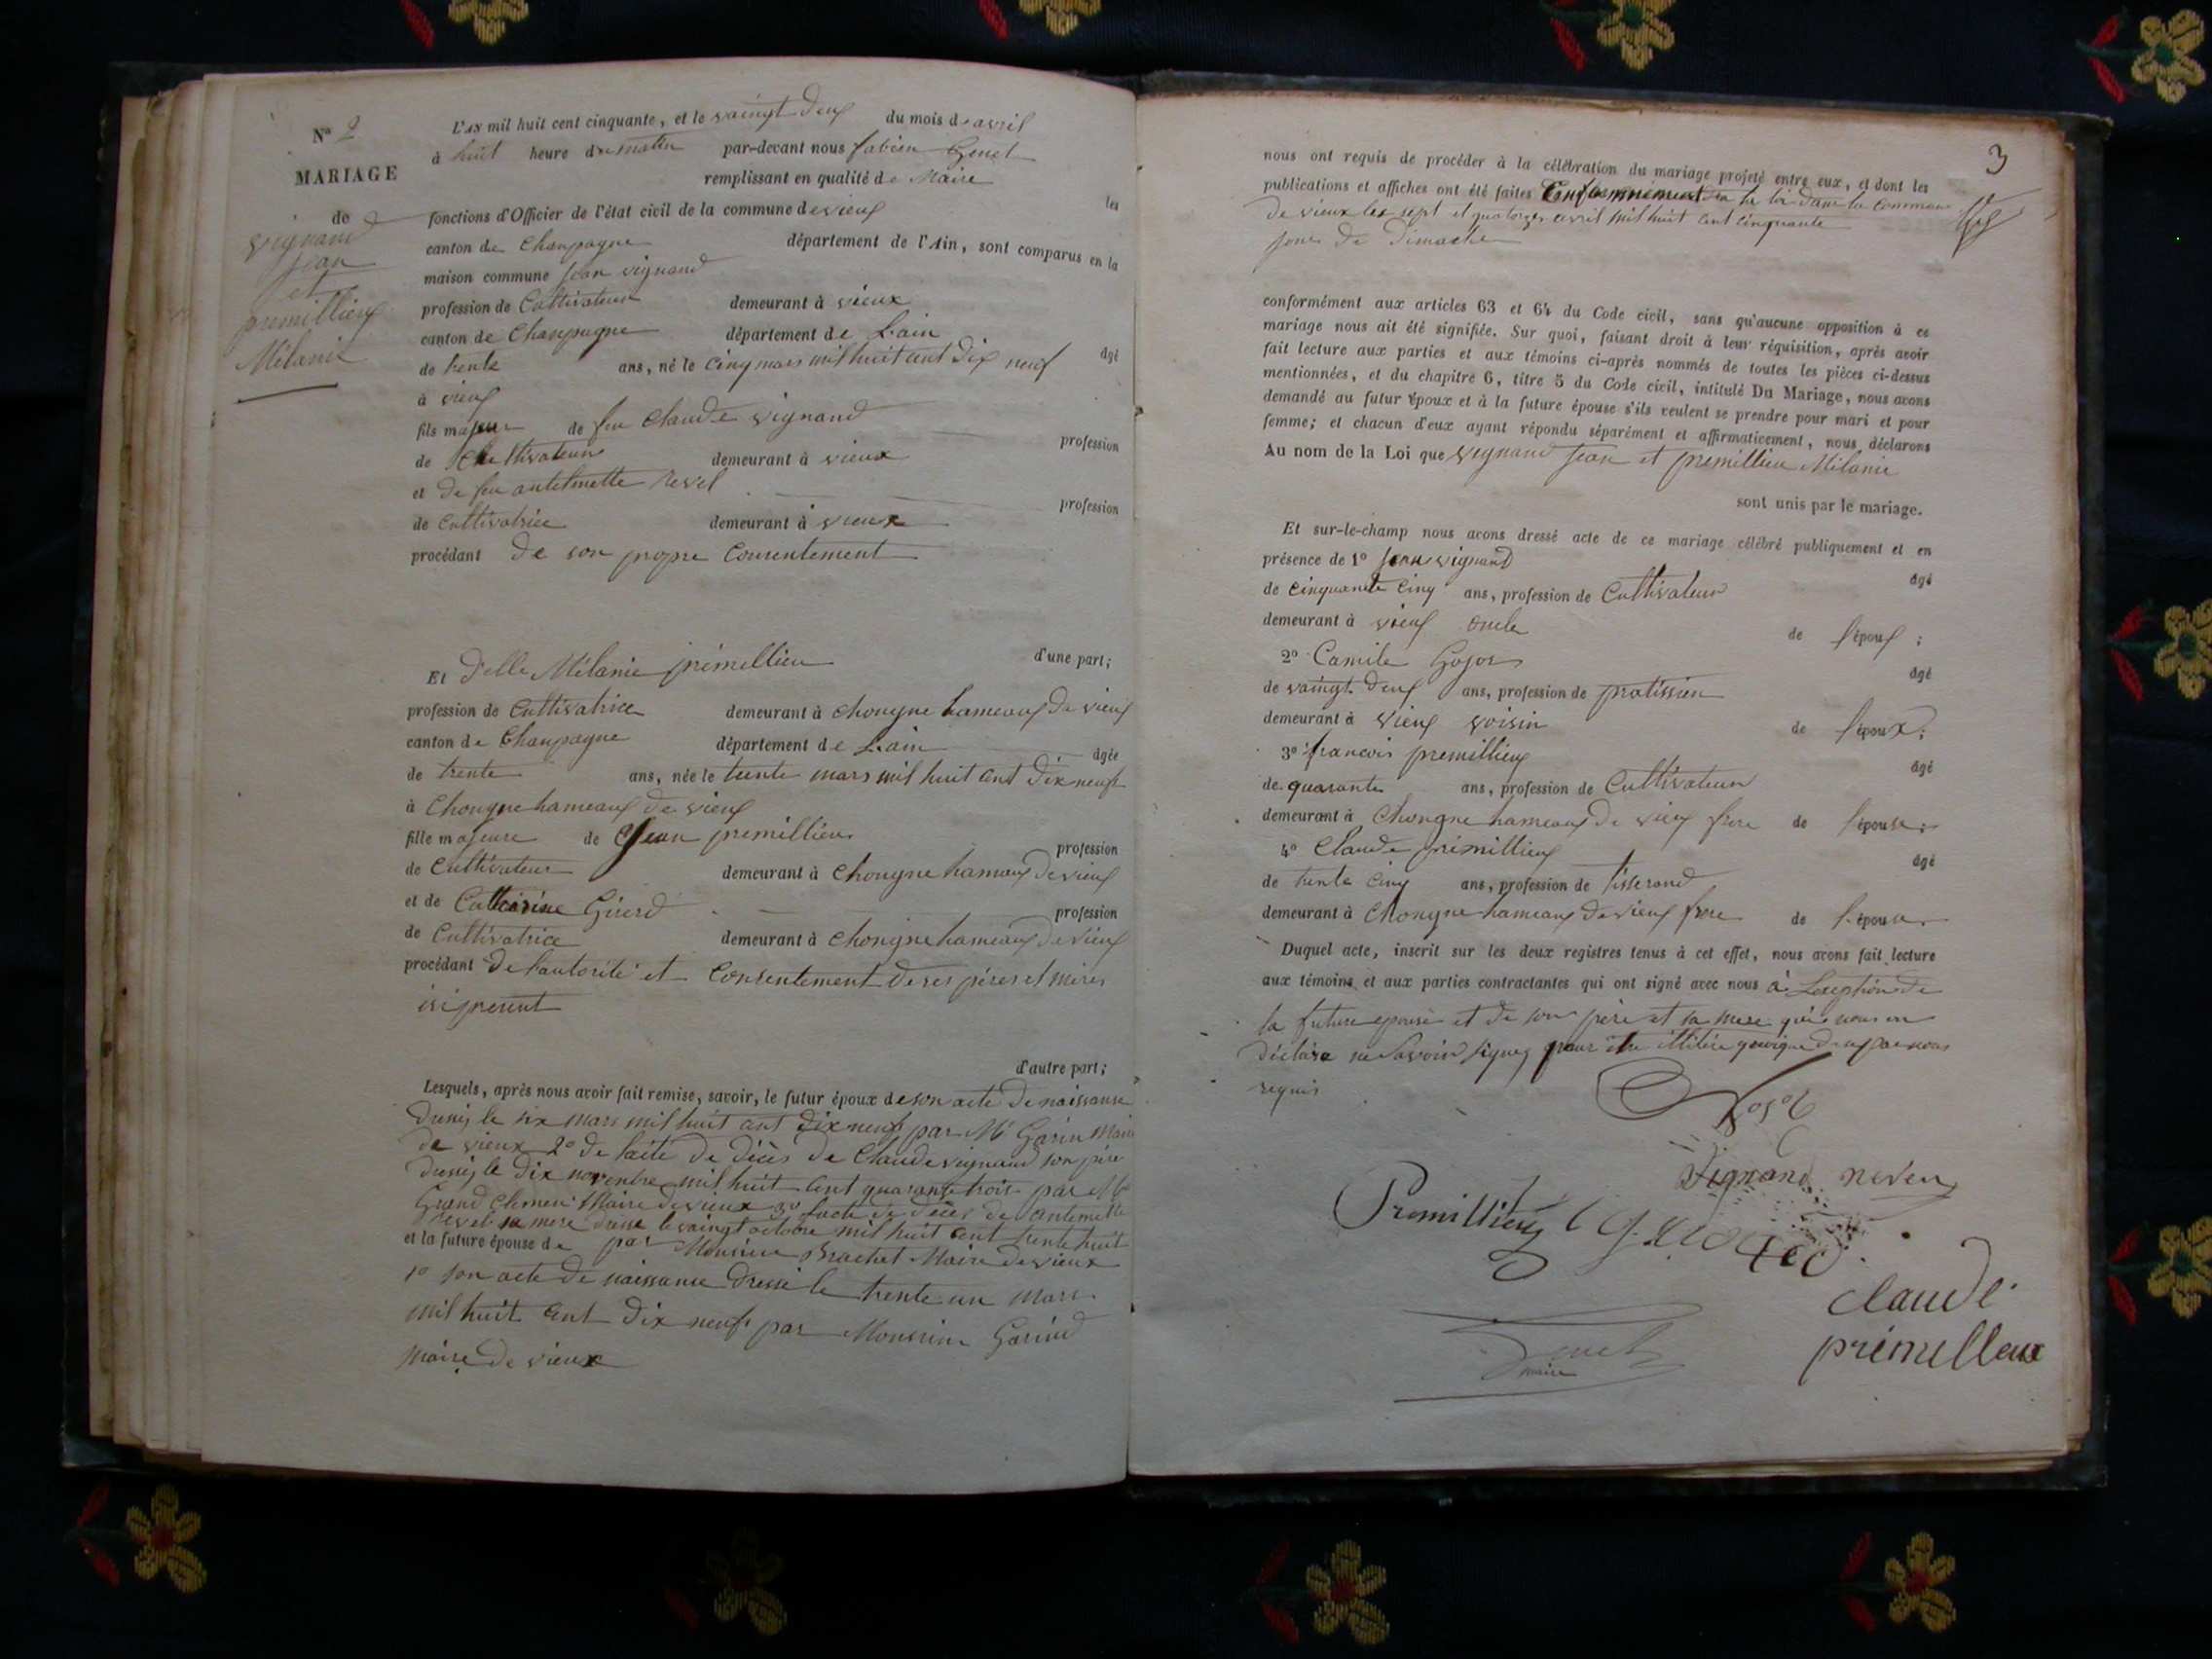 N° 2
MARIAGE
de
vignand
jean
et
premillieux
Mélanie
L'AN mil huit cent cinquante, et le vaingt deux du mois d'avril
à huit heure du matin par-devant nous fabien Genet
remplissant en qualité de Maire les
fonctions d'Officier de l'état civil de la commune de vieux
canton de Champagne département de l'Ain, sont comparus en la
maison commune jean vignand
profession de Cultivateur demeurant à vieux
canton de Champagne département de L'ain
âgé
de trente ans, né le cinq mars mil huit cent dix neuf
à vieux
fils majeur de feu Claude vignand
profession
de Cultivateur demeurant à vieux
et de feu antelmette revel
profession
de Cultivatrice demeurant à vieux
procédant de son propre Consentement
d'une part;
Et D'elle Mélanie prémillieu
profession de Cultivatrice demeurant à chongne hameaux de vieux
canton de Champagne département de L'ain
âgée
de trente ans, née le trente mars mil huit cent dix neuf
à Chongne hameaux de vieux
fille majeure de jean premillieu
profession
de Cultivateur demeurant à Chongne hameaux de vieux
et de Catherine Girerd
profession
de Cultivatrice demeurant à chongne hameaux de vieux
procédant de l'autorité et Consentement de ses pères et mères
ici present
d'autre part;
Lesquels, après nous avoir fait remise, savoir, le futur époux de son acte de naissance
dressé le six mars mil huit cent dix neuf par Mr Garin Maire
de vieux 2° de l'acte de décès de Claude vignand son père
dressé le dix novembre mil huit cent quarante trois par Mr
Grand Clement Maire de vieux 3° l'acte de décès de antelmette
revel sa mere dressé le vaingt octobre mil huit cent trente huit
et la future épouse de par Monsieur Brachet Maire de vieux
1° son acte de naissance dressé le trente un mars
mil huit cent dix neuf par Monsieur Garind
maire de vieux
3
nous ont requis de procéder à la célébration du mariage projeté entre eux, et dont les
publications et affiches ont été faites Conformément à la loi dans la commune
de vieux les sept et quatorze avril mil huit cent cinquante
jours de dimache
conformément aux articles 63 et 64 du Code civil, sans qu'aucune opposition à ce
mariage nous ait été signifiée. Sur quoi, faisant droit à leur réquisition, après avoir
fait lecture aux parties et aux témoins ci-après nommés de toutes les pièces ci-dessus
mentionnées, et du chapitre 6, titre 5 du Code civil, intitulé Du Mariage, nous avons
demandé au futur époux et à la future épouse s'ils veulent se prendre pour mari et pour
femme; et chacun d'eux ayant répondu séparément et affirmativement, nous déclarons
Au nom de la Loi que vignand jean et premillieu Mélanie
sont unis par le mariage.
Et sur-le-champ nous avons dressé acte de ce mariage célébré publiquement et en
présence de 1° jean vignand
âgé
de cinquante cinq ans, profession de Cultivateur
demeurant à vieux oncle de l'époux ;
2° Camile Gojos
âgé
de vaingt deux ans, profession de pratissien
demeurant à vieux voisin de l'époux;
3° francois premillieux
âgé
de quarante ans, profession de Cultivateur
demeurant à Chongne hameaux de vieux frere de l'épouse;
4° Claude prémillieux
âgé
de trente cinq ans, profession de tisserand
demeurant à Chongne hameaux de vieux frere de l'épouse
Duquel acte, inscrit sur les deux registres tenus à cet effet, nous avons fait lecture
aux témoins et aux parties contractantes qui ont signé avec nous à L'exception de
la future epouse et de son père et sa mere qui nous on
déclaré ne Savoir signez pour être illitéré par nous
requis
Vignand neveu
Premillieux
Claude
prémilleux
Genet
maire